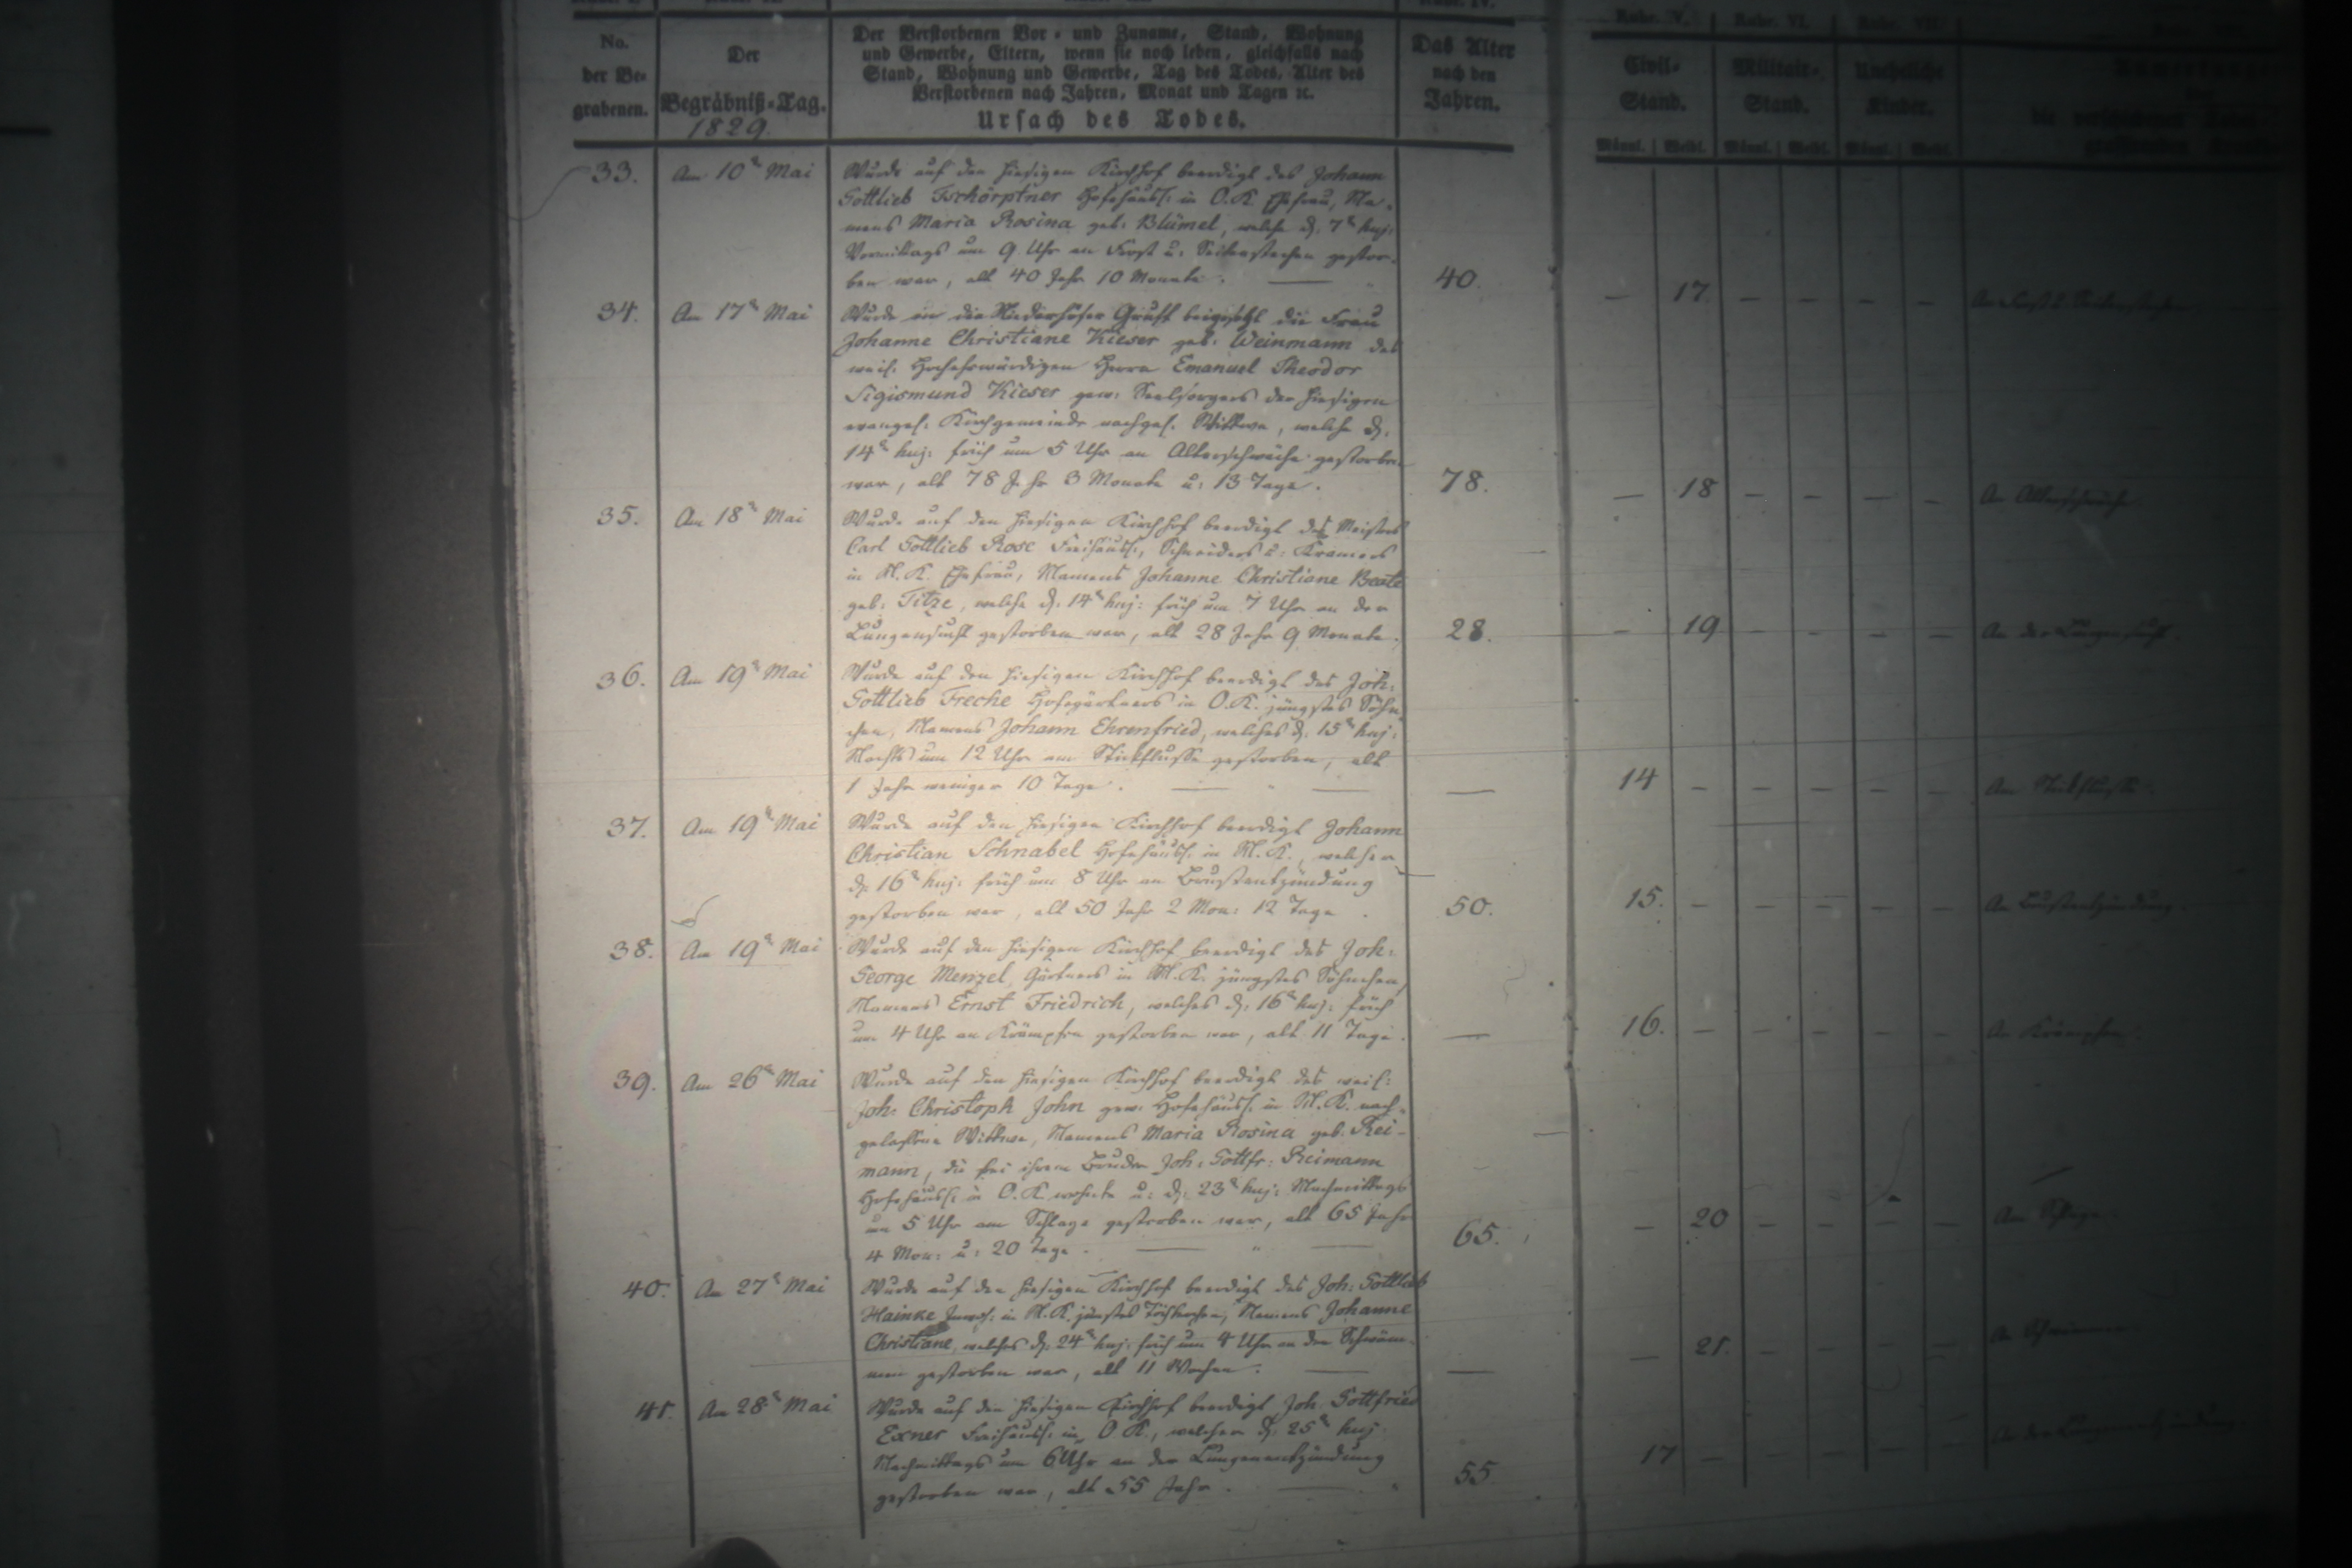 No.
der Be-
grabenen.
Der
Begräbniß-Tag.
1829.
Der Verstorbenen Vor- und Zuname, Stand, Wohnung
und Gewerbe, Eltern, wenn sie noch leben, gleichfalls nach
Stand, Wohnung und Gewerbe, Tag des Todes, Alter des
Verstorbenen nach Jahren, Monat und Tagen ꝛc.
Ursach des Todes.
Das Alter
nach den
Jahren.
Rubr. V.
Rubr. VI.
Rubr. VII.
Civil-
Stand.
Militair-
Stand.
Uneheliche
Kinder.
Männl. Weibl. Männl. Weibl. Männl. Weibl.
33. Am 10t Mai
Wurde auf den hiesigen Kirchhof beerdigt des Johann
Gottlieb Tschörptner Hofehäusl: in O.K. Ehefrau, Na-
mens Maria Rosina geb: Blümel, welche d. 7t huj:
Vormittags um 9 Uhr an Frost u: Seitenstechen gestor-
ben war, alt 40 Jahr 10 Monate.
40. — 17. — — — —
34. Am 17t Mai
Wurde in die Niederhöfer Gruft beigesetzt die Frau
Johanne Christiane Kieser geb: Weinmann des
weil: Hochehrwürdigen Herrn Emanuel Theodor
Sigismund Kieser gew: Seelsorgers der hiesigen
evangel: Kirchgemeinde nachgel. Wittwe, welche d.
14t huj: früh um 5 Uhr an Altersschwäche gestorben
war, alt 78 Jahr 3 Monate u: 13 Tage.
78. — 18 — — — — An Altersschwäche
35. Am 18t Mai
Wurde auf den hiesigen Kirchhof beerdigt des Meisters
Carl Gottlieb Rose Freihäusl:, Schneiders u: Kramers
in N.K. Ehefrau, Namens Johanne Christiane Beate
geb: Titze, welche d. 14t huj: früh um 7 Uhr an der
Lungensucht gestorben war, alt 28 Jahr 9 Monate.
28. — 19 — — — — An der Lungensucht.
36. Am 19t Mai
Wurde auf den hiesigen Kirchhof beerdigt des Joh:
Gottlieb Freche Hofegärtners in O.K. jüngstes Söhn-
chen, Namens Johann Ehrenfried, welches d. 15t huj:
Nachts um 12 Uhr am Stickflusse gestorben, alt
1 Jahr weniger 10 Tage.
— 14 — — — — — Am Stickflusse.
37. Am 19t Mai
Wurde auf den hiesigen Kirchhof beerdigt Johann
Christian Schnabel Hofehäusl: in N.K., welcher
d. 16t huj: früh um 8 Uhr an Brustentzündung
gestorben war, alt 50 Jahr 2 Mon: 12 Tage.
50. 15. — — — — — An Brustentzündung.
38. Am 19t Mai
Wurde auf den hiesigen Kirchhof beerdigt des Joh:
George Menzel, Gärtners in N.K. jüngstes Söhnchen,
Namens Ernst Friedrich, welches d. 16t huj: früh
um 4 Uhr an Krämpfen gestorben war, alt 11 Tage.
— 16. — — — — — An Krämpfen.
39. Am 26t Mai
Wurde auf den hiesigen Kirchhof beerdigt des weil:
Joh: Christoph John gew: Hofehäusl: in N.K. nach-
gelassene Wittwe, Namens Maria Rosina geb. Rei-
mann, die bei ihrem Bruder Joh: Gottfr: Reimann
Hofehäusl: in O.K. wohnte u: d. 23t huj: Nachmittags
um 5 Uhr am Schlage gestorben war, alt 65 Jahr
4 Mon: u: 20 Tage.
65. — 20 — — — — Am Schlage.
40. Am 27t Mai
Wurde auf den hiesigen Kirchhof beerdigt des Joh: Gottlieb
Hainke Inwoh: in N.K. jüngstes Töchterchen, Namens Johanne
Christiane, welches d. 24t huj: früh um 4 Uhr an den Schwäm-
men gestorben war, alt 11 Wochen.
— — 21. — — — — An Schwämmen
41. Am 28t Mai
Wurde auf den hiesigen Kirchhof beerdigt Joh. Gottfried
Exner Freihäusl: in O.K., welcher d. 25t huj:
Nachmittags um 6 Uhr an der Lungenentzündung
gestorben war, alt 55 Jahr.
55 17 — — — — —